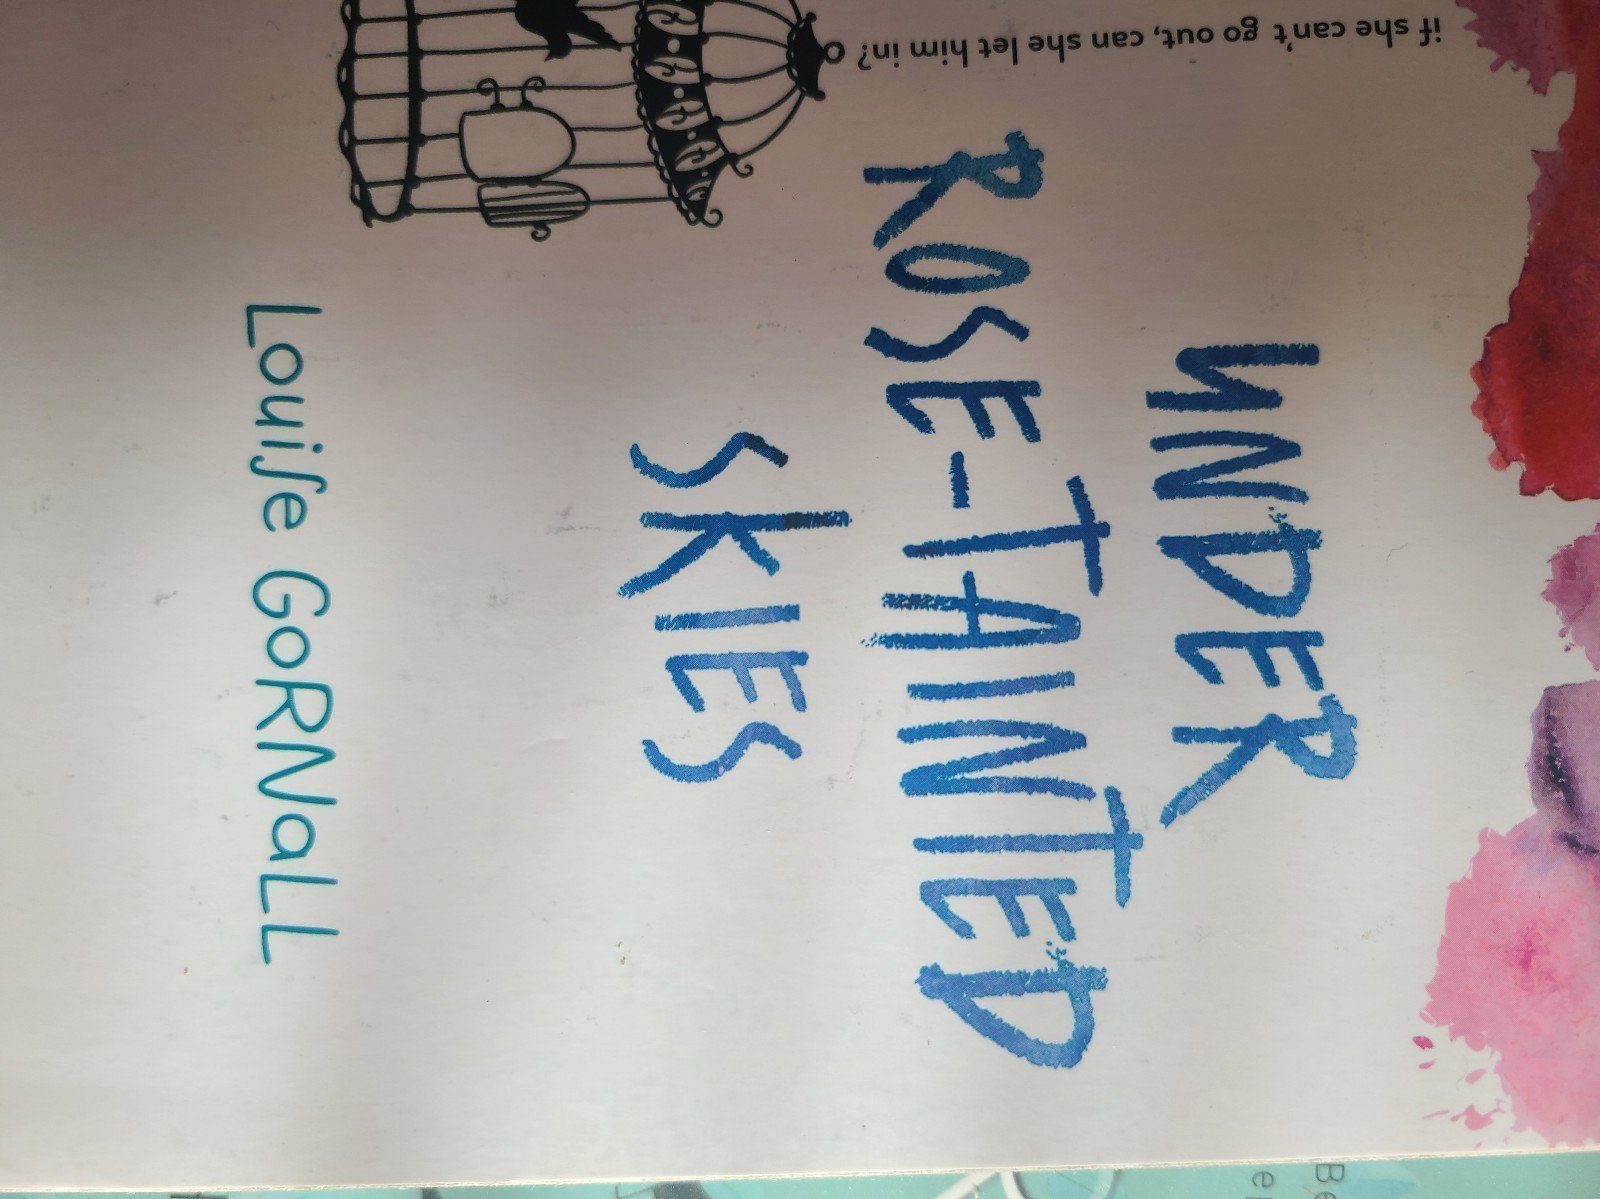 UNDER
ROSE-TAINTED
SKIES
LouiSe GoRNaLL
if she can't go out, can she let him in?